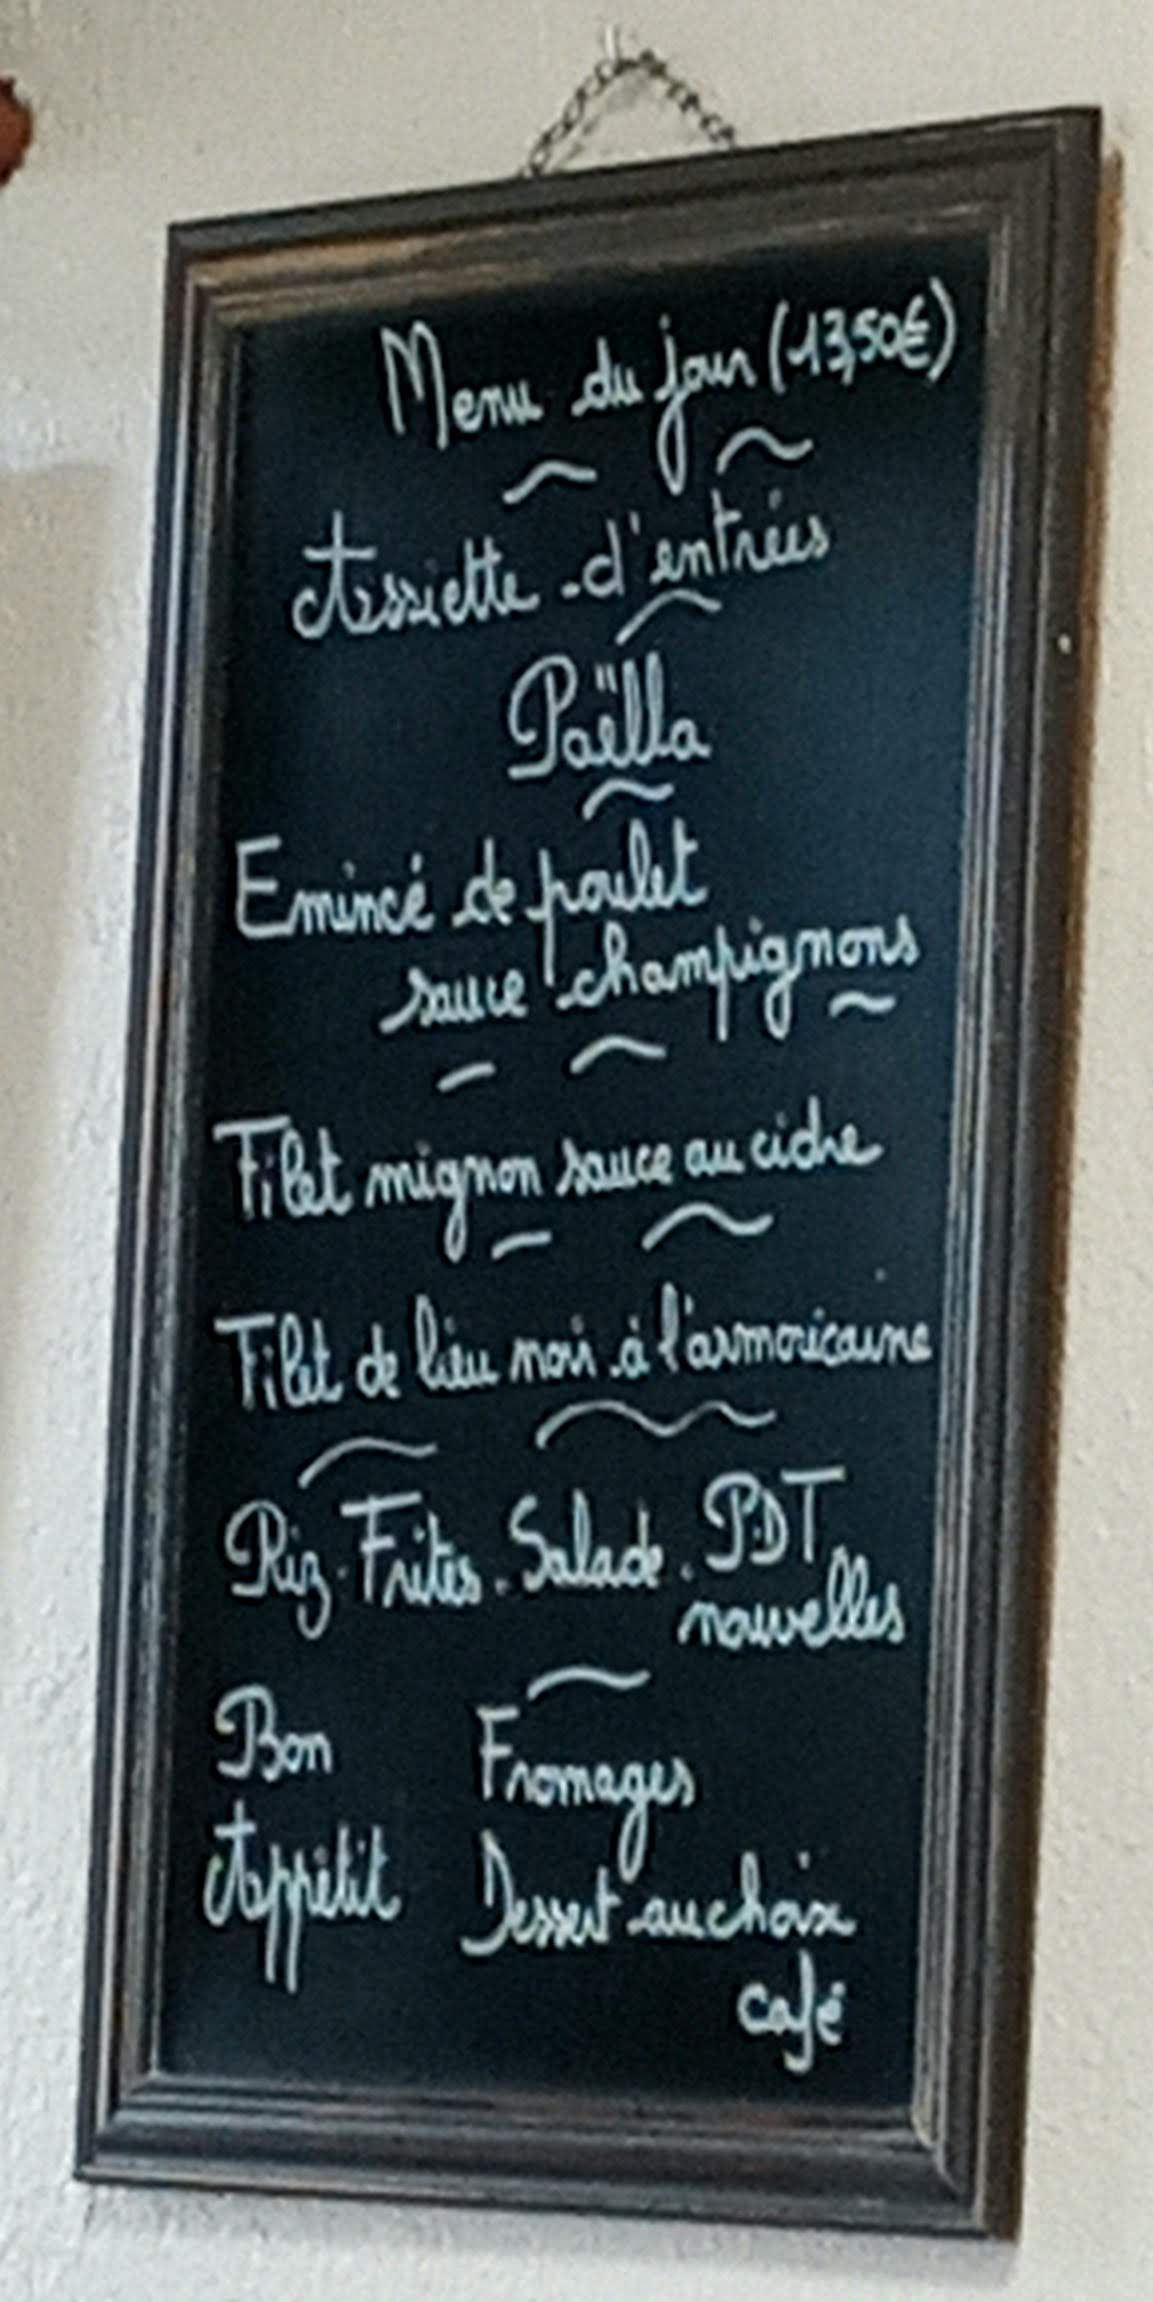 Menu du jour (13,50€)
Assiette d'entrées
Paëlla
Emincé de poulet
sauce champignons
Filet mignon sauce au cidre
Filet de lieu noir à l'armoricaine
Riz. Frites. Salade. P.DT
nouvelles
Bon
Appétit
Fromages
Dessert au choix
café